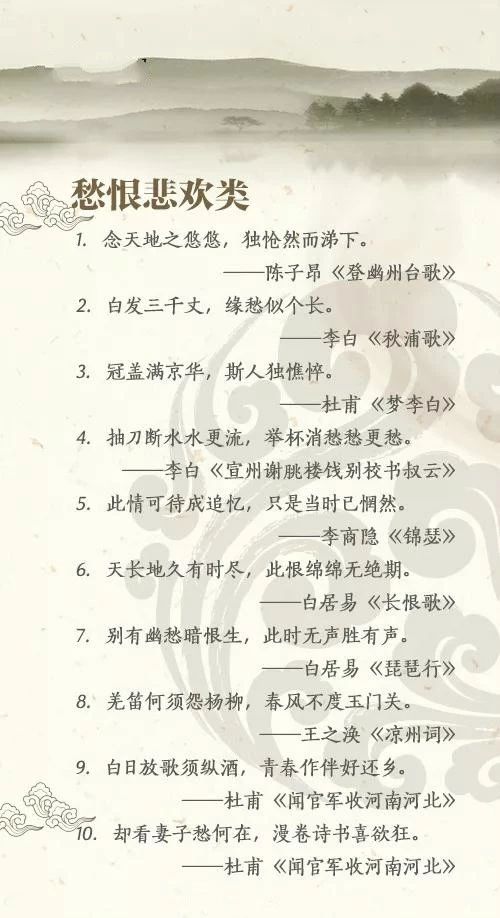 愁恨悲欢类
1. 念天地之悠悠，独怆然而涕下。
——陈子昂《登幽州台歌》
2. 白发三千丈，缘愁似个长。
——李白《秋浦歌》
3. 冠盖满京华，斯人独憔悴。
——杜甫《梦李白》
4. 抽刀断水水更流，举杯消愁愁更愁。
——李白《宣州谢朓楼饯别校书叔云》
5. 此情可待成追忆，只是当时已惘然。
——李商隐《锦瑟》
6. 天长地久有时尽，此恨绵绵无绝期。
——白居易《长恨歌》
7. 别有幽愁暗恨生，此时无声胜有声。
——白居易《琵琶行》
8. 羌笛何须怨杨柳，春风不度玉门关。
——王之涣《凉州词》
9. 白日放歌须纵酒，青春作伴好还乡。
——杜甫《闻官军收河南河北》
10. 却看妻子愁何在，漫卷诗书喜欲狂。
——杜甫《闻官军收河南河北》